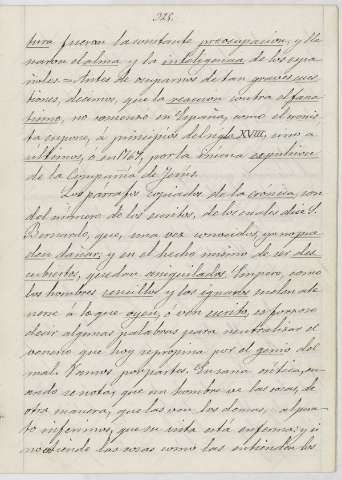 328.
tura fueron la constante preocupacion, y lle
naron el alma y la inteligencia de los espa
ñoles.=Antes de ocuparnos de tan graves cues
tiones, décimos, que la reaccion contra el fana
tismo, no comenzó en España, como el cronis
ta supone, á principios del siglo XVIII, sino a
últimos, ó en 1767, por la inicua expulsion
de la Compañia de Jesús.
Los párrafos copiados de la crónica, son
del número de los escritos, de los cuales dice S.
Bernardo, que, una vez conocidos, ya no pue
den dañar; y en el hecho mismo de ser des
cubiertos, quedan aniquilados. Empero, como
los hombres sencillos y los ignaros suelen ate
nerse á lo que oyen, ó ven escrito, es forzoso
decir algunas palabras para neutralizar el
veneno que hoy se propina por el genio del
mal. Vamos por partes. En sana critica, cu
ando se nota, que un hombre ve las cosas, de
otra manera, que las ven los demas, al pun
to inferimos, que su vista está enferma: y si
no entiende las cosas como las entienden los